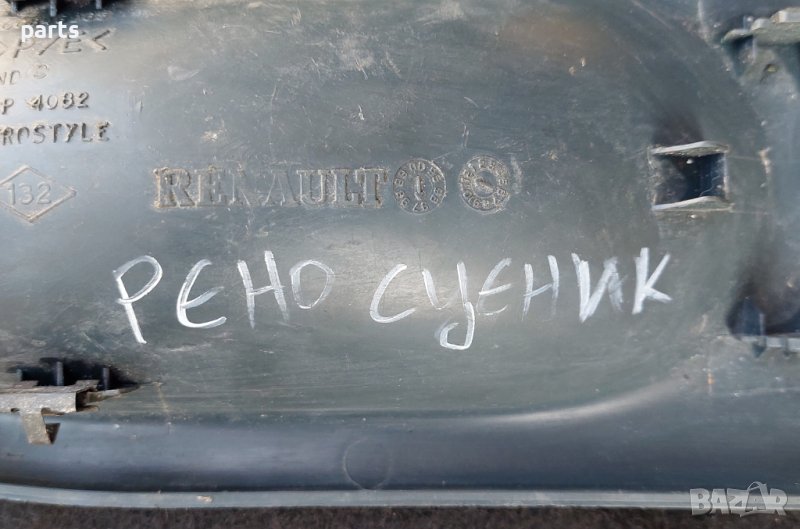 parts
P/E<
4082
ROSTYLE
132
RENAULT
РЕНО СЦЕНИК
BAZAR